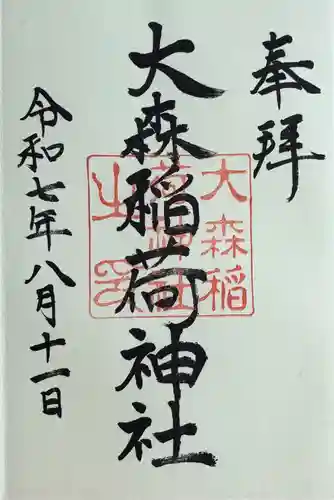 奉拝
大森稲荷神社
令和七年八月十一日
大森稲
荷神社
之印